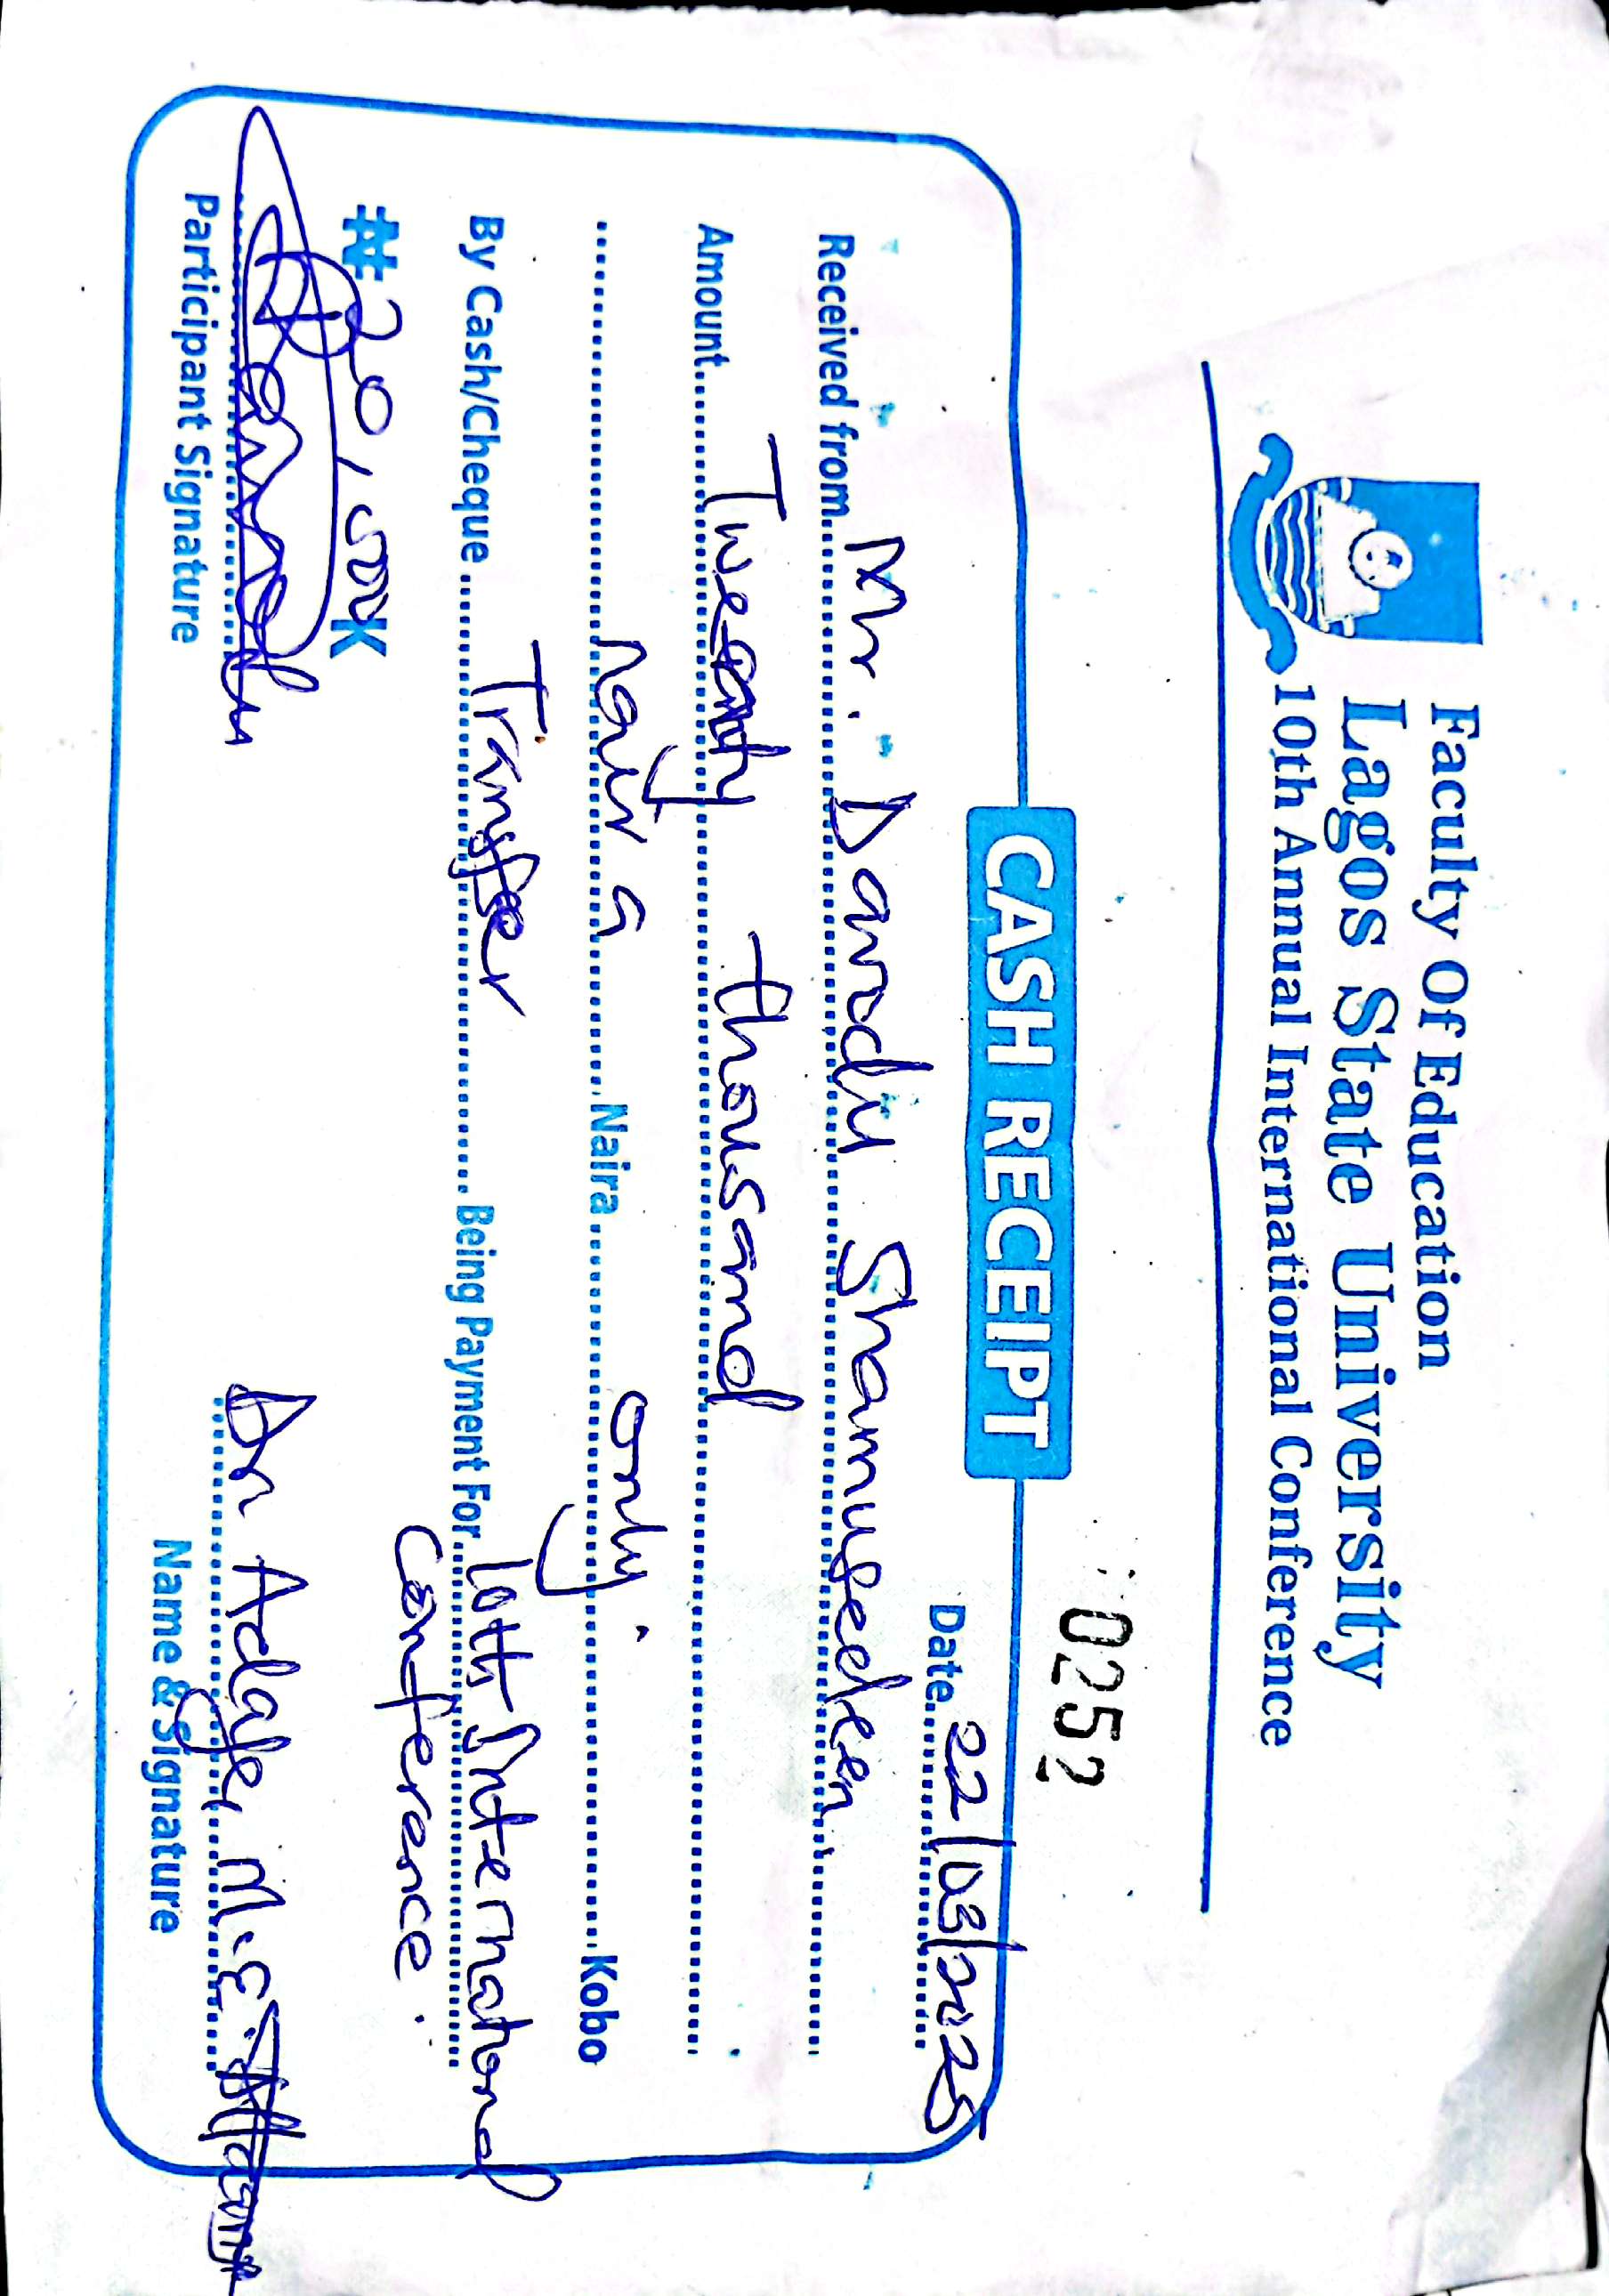 Faculty Of Education
Lagos State University
10th Annual International Conference
0252
CASH RECEIPT
Date 22/08/2025
Received from Mr. Daradu Shamusedeen
Amount Twenty thousand
Naira Naira only. Kobo
By Cash/Cheque Transfer Being Payment For 10th International
Conference.
₦ 20, 000 K
Dr Adaye M.E
Participant Signature
Name & Signature